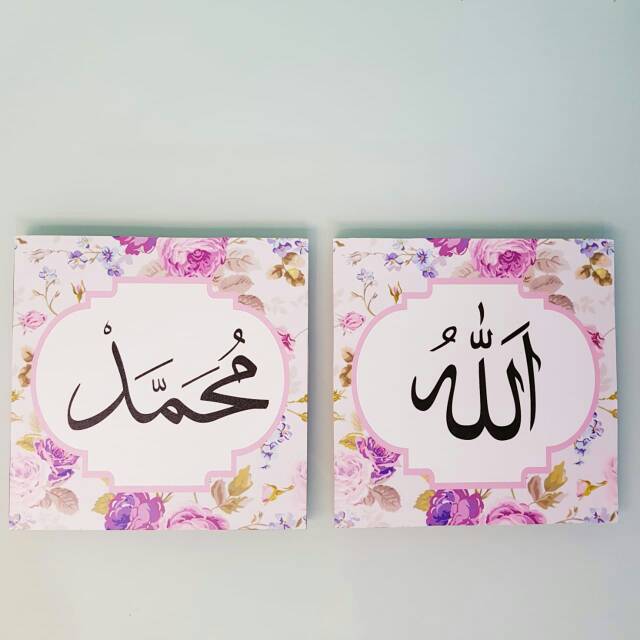 اللّٰهُ
مُحَمَّدْ